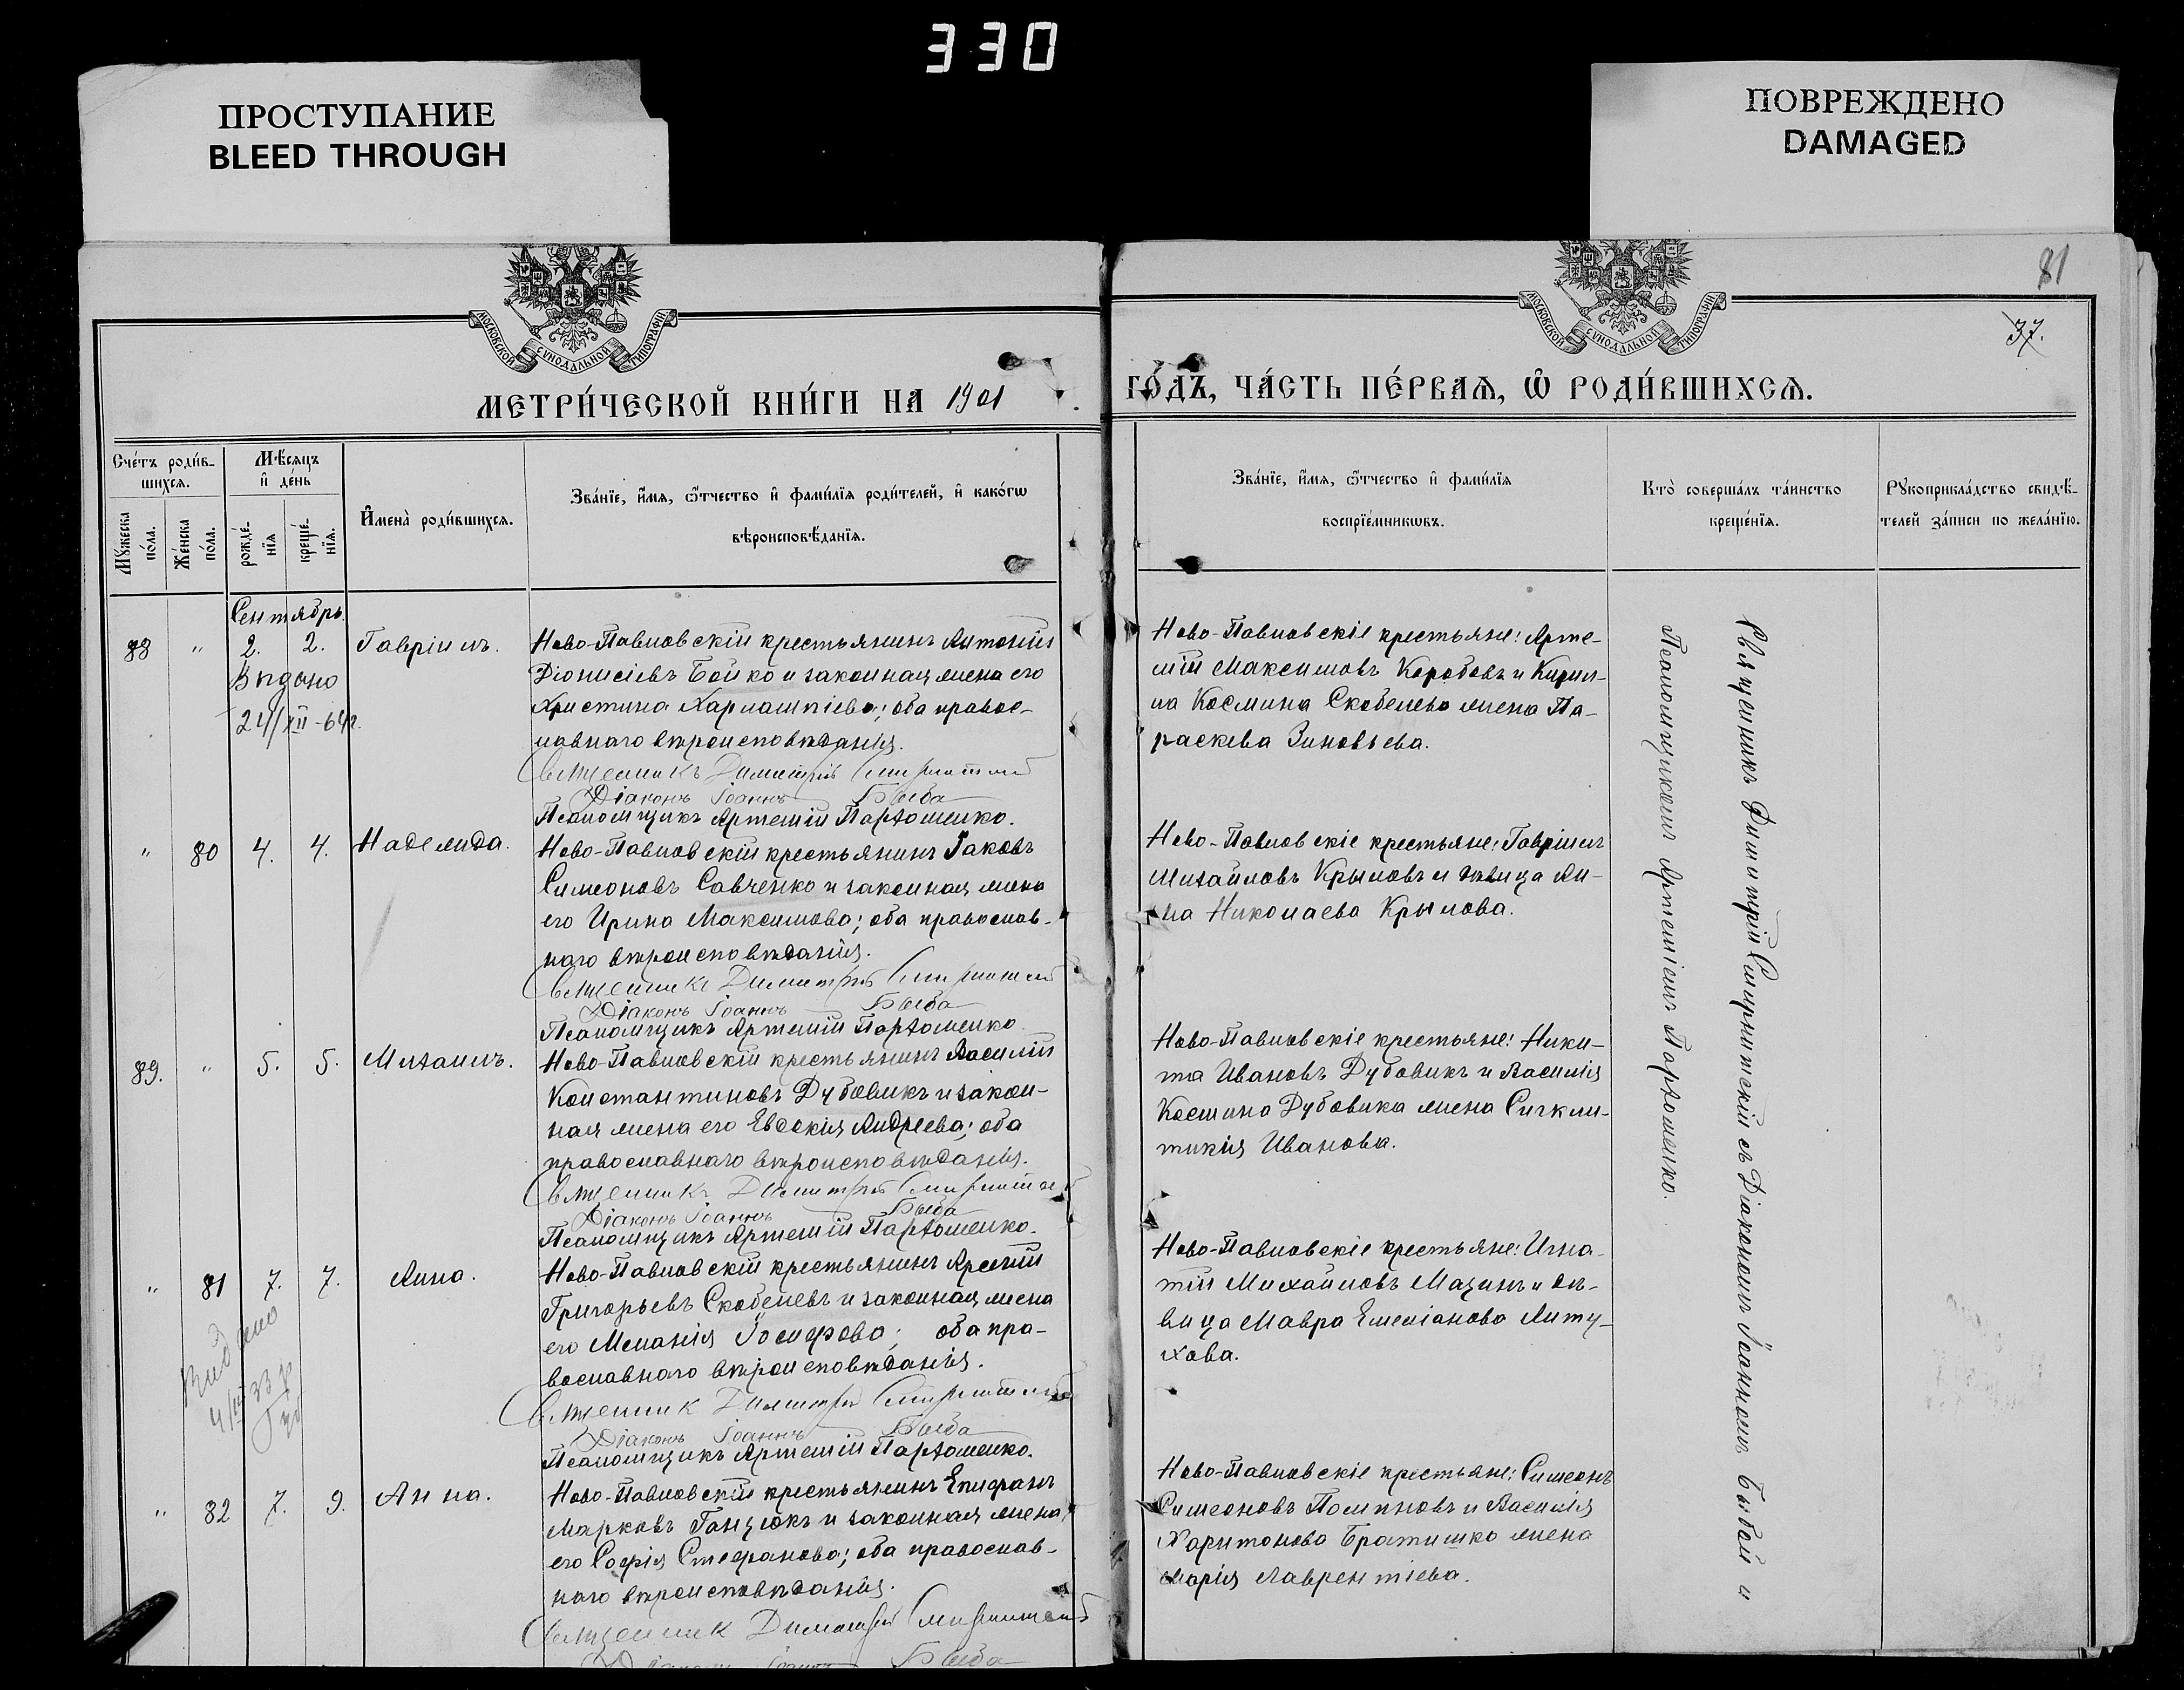 330
ПРОСТУПАНИЕ
BLEED THROUGH
ПОВРЕЖДЕНО
DAMAGED
МОСКОВСКОЙ СУНОДАЛЬНОЙ ТИПОГРАФІИ
МОСКОВСКОЙ СУНОДАЛЬНОЙ ТИПОГРАФІИ
81
37.
МЕТРИ́ЧЕСКОЙ КНИ́ГИ НА 1901
ГО́ДЪ, ЧА́СТЬ ПЕ́РВАѦ, Ѡ҆ РОДИ́ВШИХСѦ.
Сче́тъ роди́в-
шихсѧ.
Мѣ́сѧцъ
и҆ де́нь
Мꙋ́жеска
по́ла.
Же́нска
по́ла.
рожде́-
нїѧ
креще́-
нїѧ.
И҆мена̀ роди́вшихсѧ.
Зва́нїе, и҆́мѧ, ѻ҆́тчество и҆ фами́лїѧ роди́телей, и҆ како́гѡ
вѣроисповѣ́данїѧ.
Зва́нїе, и҆́мѧ, ѻ҆́тчество и҆ фами́лїѧ
воспрїе́мникѡвъ.
Кто̀ соверша́лъ та́инство
креще́нїѧ.
Рꙋкоприкла́дство свидѣ́-
телей за́писи по жела́нїю.
Сентябрь.
88 " 2. 2. Гавріилъ.
Выдано
24/XII-64г.
Ново-Павловскій крестьянинъ Антоній
Діонисіевъ Бойко и законная жена его
Христина Харлампіева; оба правос-
лавнаго вѣроисповѣданія.
Священникъ Димитрій
Діаконъ Іоаннъ Быба
Псаломщикъ Артемій Пархоменко.
Ново-Павловскіе крестьяне: Арте-
мій Максимовъ Коробовъ и Кирил-
ла Космина Скобелева жена Па-
раскева Зиновьева.
" 80 4. 4. Надежда.
Ново-Павловскій крестьянинъ Іаковъ
Симеоновъ Савченко и законная жена
его Ирина Максимова; оба православ-
наго вѣроисповѣданія.
Священникъ Димитрій
Діаконъ Іоаннъ Быба
Псаломщикъ Артемій Пархоменко
Ново-Павловскіе крестьяне: Гавріилъ
Михайловъ Крыловъ и дѣвица Ан-
на Николаева Крылова.
89. " 5. 5. Михаилъ.
Ново-Павловскій крестьянинъ Василій
Константиновъ Дубовикъ и закон-
ная жена его Евдокія Андреева; оба
православнаго вѣроисповѣданія.
Священникъ Димитрій
Діаконъ Іоаннъ Быба
Псаломщикъ Артемій Пархоменко.
Ново-Павловскіе крестьяне: Ники-
та Ивановъ Дубовикъ и Василія
Космина Дубовика жена Сигкли-
тикія Иванова.
" 81 7. 7. Анна.
Ново-Павловскій крестьянинъ Арсеній
Григорьевъ Скобелевъ и законная жена
его Меланія Іосифова; оба пра-
вославнаго вѣроисповѣданія.
Священник Димитрій
Діаконъ Іоаннъ Быба
Псаломщикъ Артемій Пархоменко.
Ново-Павловскіе крестьяне: Игна-
тій Михайловъ Мазинъ и дѣ-
вица Мавра Емеліанова Анту-
хова.
" 82 7. 9. Анна.
Ново-Павловскій крестьянинъ Епифанъ
Марковъ Ганзюкъ и законная жена
его Софія Стефанова; оба православ-
наго вѣроисповѣданія.
Священник Димитрій
Діаконъ Іоаннъ Быба
Ново-Павловскіе крестьяне: Симеонъ
Симеоновъ Поляновъ и Василія
Харитонова Братишко жена
Марія Лаврентіева.
Священникъ Димитрій Смирнитскій съ Діакономъ Іоанномъ Быбай и
Псаломщикомъ Артеміемъ Пархоменко.